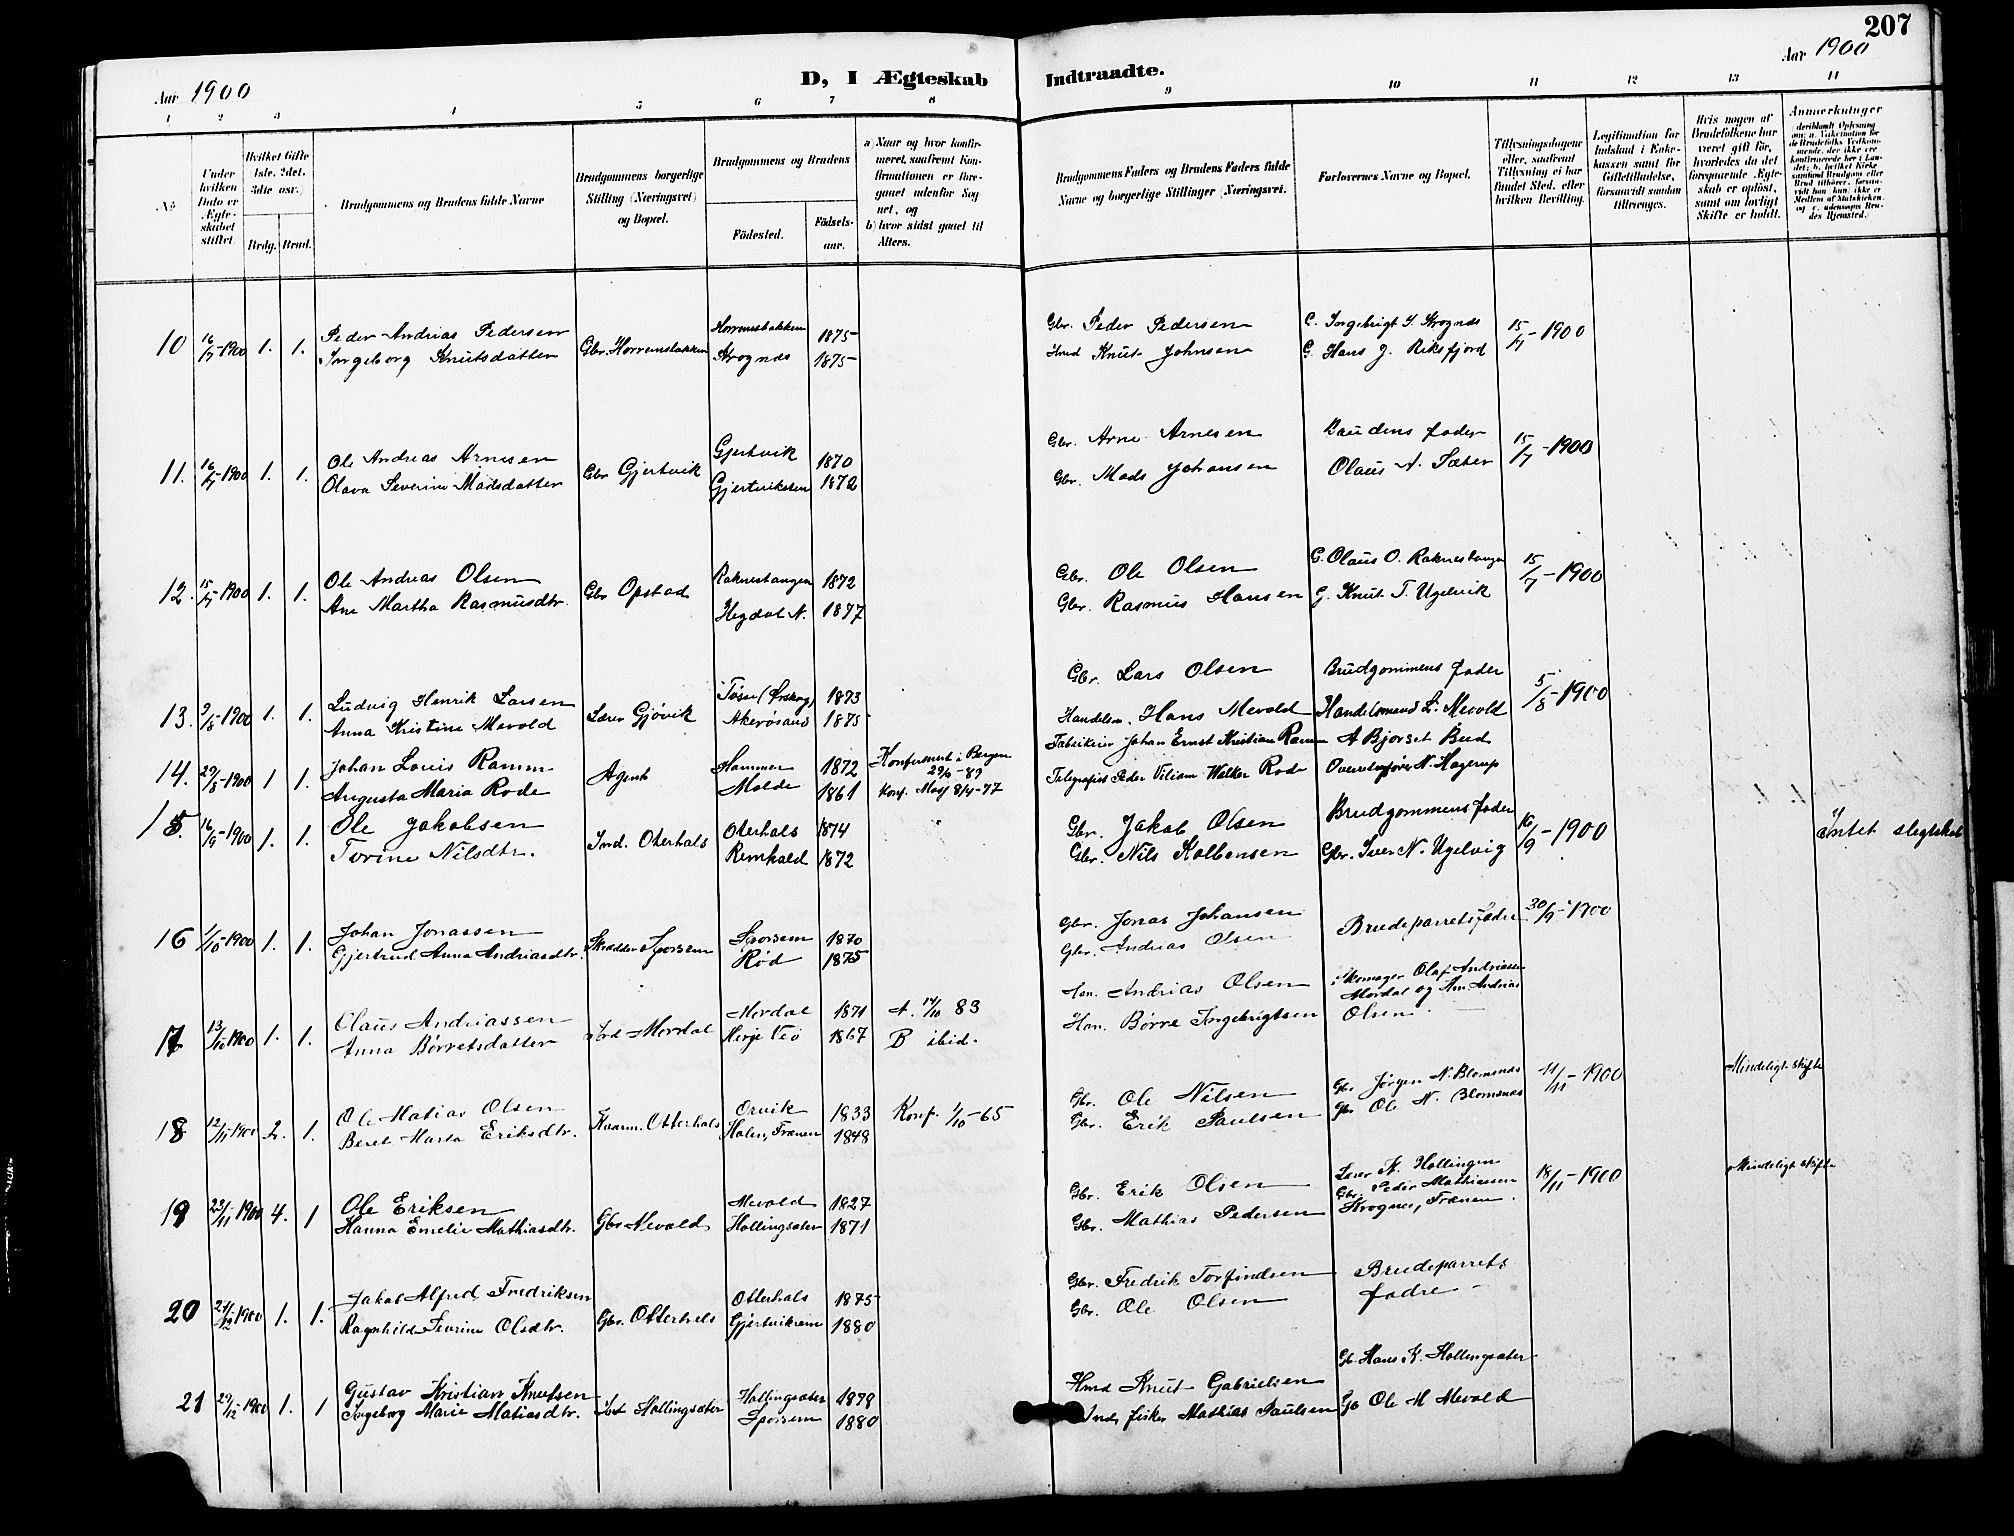 207
Aar 1900
D, I Ægteskab Indtraadte.
Aar 1900
1 2 3 4 5 6 7 8 9 10 11 12 13 14
No.
Under hvilken Dato er Ægteskabet stiftet.
Hvilket Gifte 1ste, 2det, 3die osv.
Brdg. Brud.
Brudgommens og Brudens fulde Navne
Brudgommens borgerlige Stilling (Næringsvei) og Bopæl.
Brudgommens og Brudens
Fødested.
Fødselsaar.
a) Naar og hvor konfirmeret, saafremt Konfirmationen er foregaaet udenfor Sognet, og
b) hvor sidst gaaet til Alters.
Brudgommens Faders og Brudens Faders fulde Navne og borgerlige Stillinger (Næringsvei.
Forlovernes Navne og Bopæl.
Tillysningsdagene eller, saafremt Tillysning ei har fundet Sted, efter hvilken Bevilling.
Legitimation for Indskud i Enkekassen samt for Giftetilladelse, forsaavidt saadan tiltrænges.
Hvis nogen af Brudefolkene har været gift før, hvorledes da det foregaaende Ægteskab er opløst, samt om lovligt Skifte er holdt.
Anmærkninger
10 16/7-1900 1. 1. Peder Andreas Pedersen Gbr. Horremsbakken Horremsbakken 1875 Gbr. Peder Pedersen G. Ingebrigt J. Strognes 15/7-1900
Ingeborg Knutsdatter Strognes 1875 Hmd Knut Johnsen G. Hans J. Riksfjord
11. 16/7-1900 1. 1. Ole Andreas Arnesen Gbr Gjertvik Gjertvik 1870 Gbr. Arne Arnesen Brudens fader 15/7-1900
Olava Severine Madsdatter 1872 Gbr. Mads Johansen Olaus A. Sæter
12. 15/7-1900 1. 1. Ole Andreas Olsen Gbr Opstad Raknestangen 1872 Gbr. Ole Olsen G. Olaus O. Raknestangen 15/7-1900
Ane Martha Rasmusdtr. Hegdal N. 1877 Gbr. Rasmus Hansen G. Knut T. Ugelvik
13. 9/8-1900 1. 1. Ludvig Henrik Larsen Lærer Gjøvik (Ørskog) 1873 Gbr. Lars Olsen Brudgommens fader 5/8-1900
Anna Kristine Mevold Akerøsund 1875 Handelsm. Hans Mevold Handelsmand L. Mevold
14. 29/8-1900 1 1 Johan Louis Ramm Agent Hammer 1872 Konfirmert i Bergen 29/9-89 Fabrikeier Johan Ernst Kristian Ramm A Bjorset Bud
Augusta Maria Rode Molde 1861 Konf. 8/4-77 Telegrafist Peder Viliam Walker Rode N. Hagerup
15. 16/9-1900 1. 1. Ole Jakobsen Ind. Oterhals Oterhals 1874 Gbr. Jakob Olsen Brudgommens fader 16/9-1900 Intet slegtskab
Torine Nilsdtr. Remhald 1872 Gbr. Nils Kolbensen Gbr. Iver N. Ugelvig
16 1/10-1900 1. 1. Johan Jonassen Skrædder Sporsem Sporsem 1870 Gbr. Jonas Johansen Brudeparrets fædre 30/9-1900
Gjertrud Anna Andriasdtr. Rød 1875 Gbr. Andreas Olsen
17 13/10 1900 1. 1. Olaus Andriassen Mordal Mordal 1871 A. 14/10 83 Andrias Olsen Skomager Olaf Andriassen
Anna Børretsdatter Herje Veø 1867 B ibid. Børre Ingebrigtsen Mordal og Andrias Olsen.
18 12/11 1900 2. 1. Ole Matias Olsen Kaarm. Otterhals Orvik 1833 Konf. 1/10-65 Gbr. Ole Nilsen Gbr Jørgen N. Blomsnes 11/11-1900 Mindeligt skifte
Beret Marta Eriksdtr. Frænen 1848 Gbr. Erik Paulsen Gbr Ole N. Blomsnes
19 23/11 1900 4. 1 Ole Eriksen Gbr Mevold Mevold 1827 Gbr. Erik Olsen Lærer K. Hollingen 18/11-1900 Mindeligt skifte
Hanna Emelie Mathiasdtr. Hollingsæter 1871 Gbr. Mathias Pedersen Gbr. Peder Mathiassen Strognes, Frænen.
20 1900 1. 1. Jakob Alfred Fredriksen Gbr. Otterhals Otterhals 1875 Gbr. Fredrik Torfindsen Brudeparrets
Ragnhild Severine Olsdtr. 1880 Gbr. Ole Olsen fædre
21 29/12-1900 1. 1 Gustav Kristian Knutsen Hollingsæter Hollingsæter 1878 Hmd Knut Gabrielsen Gb. Hans K. Hollingsæter
Ingeborg Marie Matiasdtr. Sporsem 1880 Ind, fisker Mathias Paulsen Gb Ole M Mevold